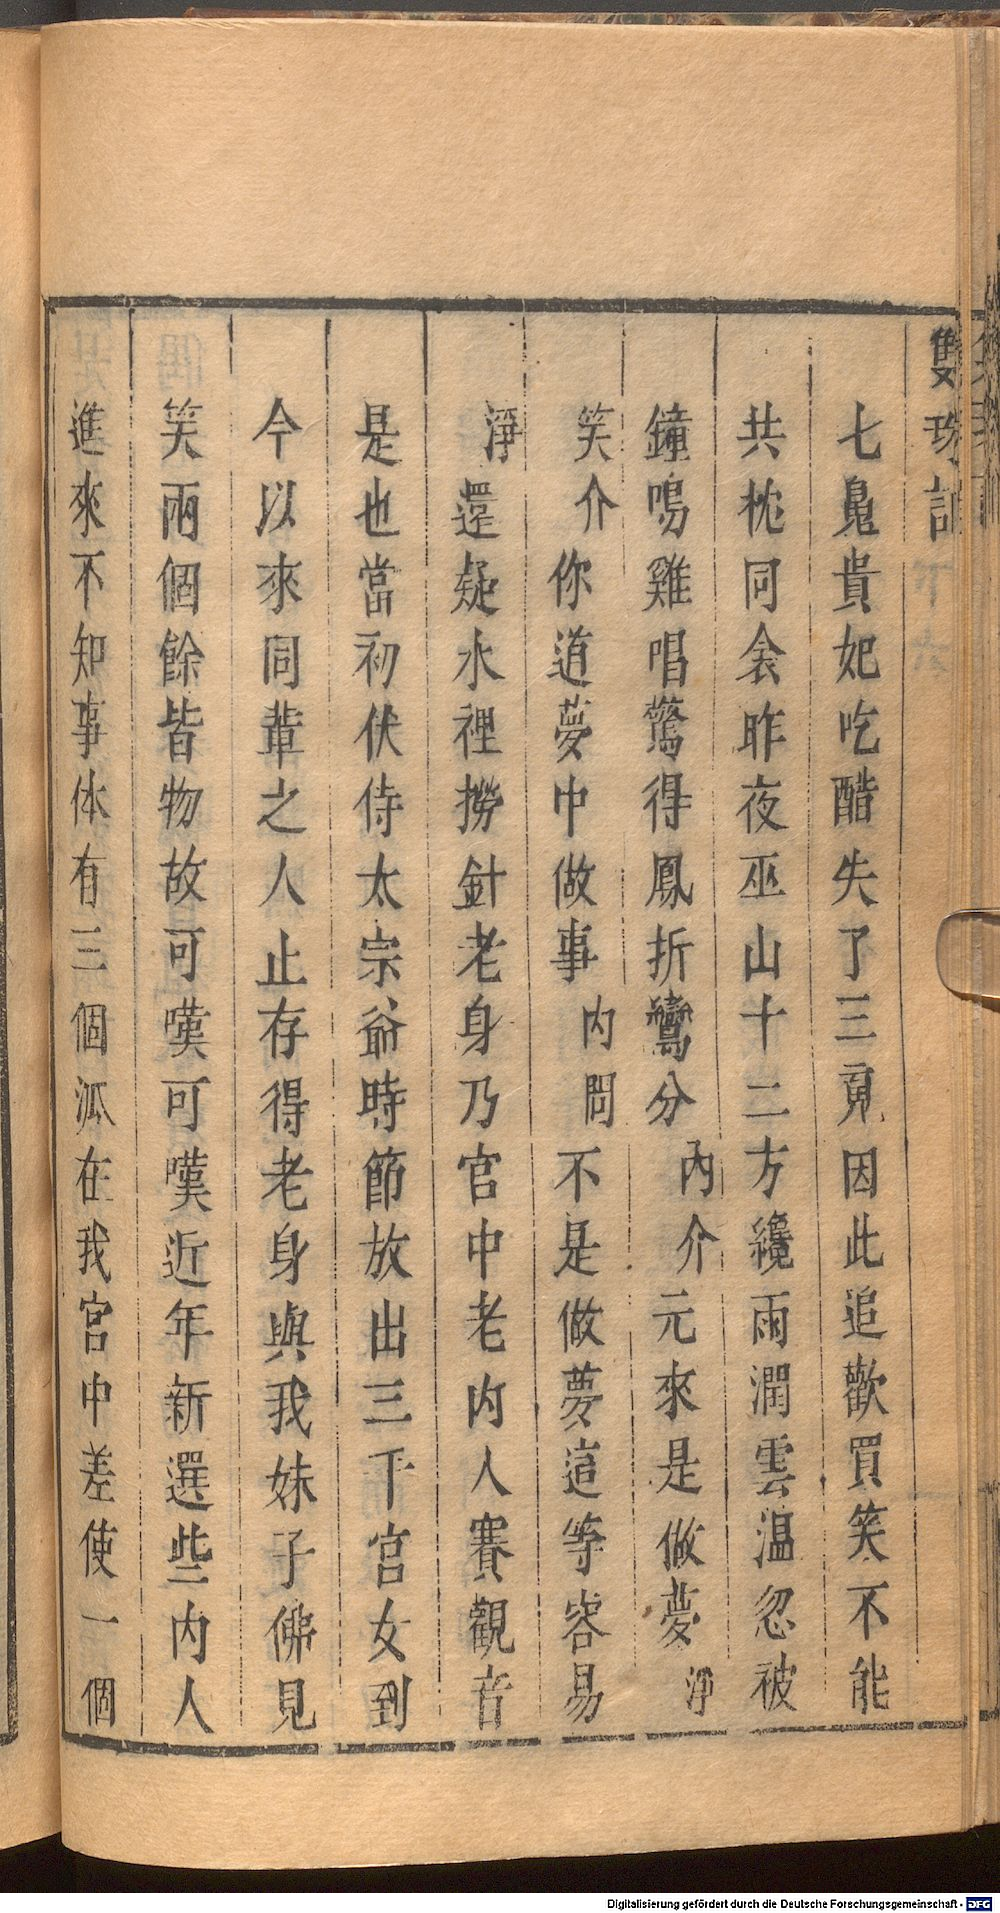 雙珠記
七鳧貴妃吃醋失了三竟因此追歡買笑不能
共枕同衾昨夜巫山十二方纔雨潤雲温忽被
鐘鳴雞唱驚得鳳折鸞分內介元來是做夢淨
笑介你道夢中做事内問不是做夢這等容易
淨還疑水裡撈針老身乃宫中老内人賽觀音
是也當初伏侍太宗爺時節放出三千宫女到
今以來同輩之人止存得老身與我妹子佛見
笑兩個餘皆物故可嘆可嘆近年新選些内人
進來不知事体有三個泒在我宫中差使一個
Digitalisierung gefördert durch die Deutsche Forschungsgemeinschaft - DFG